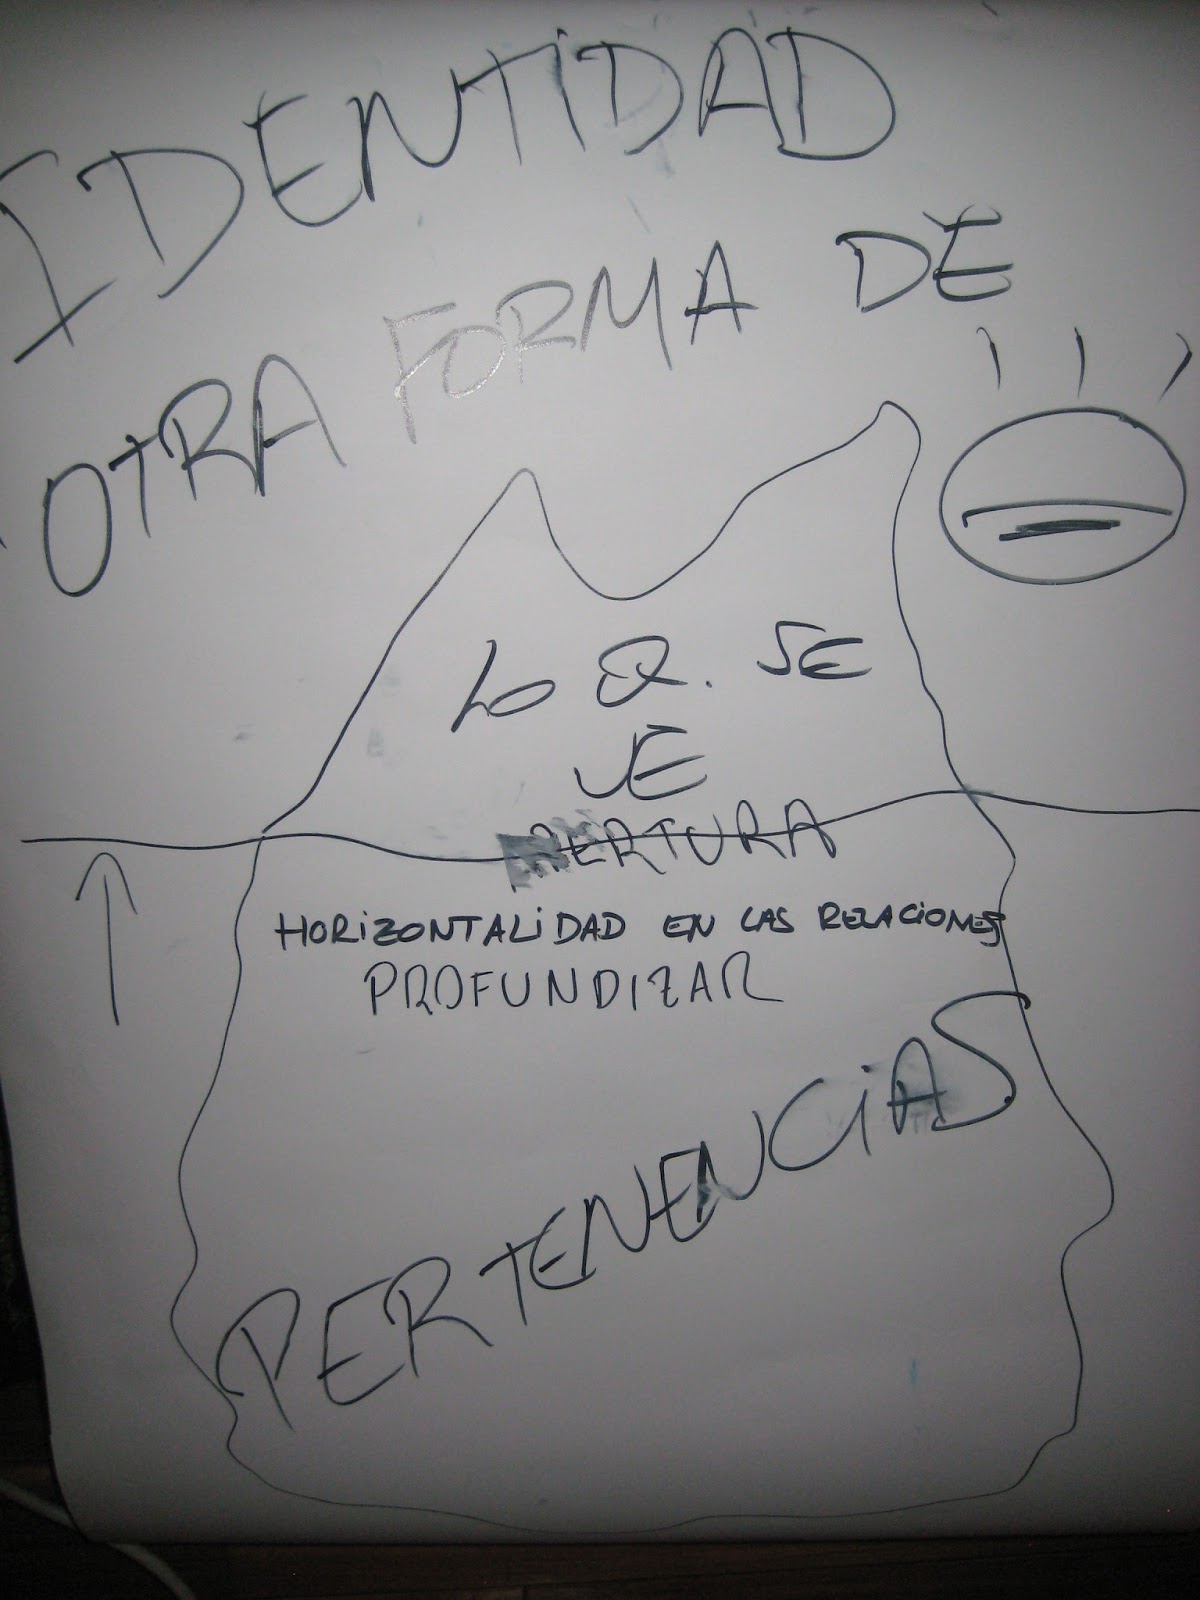 IDENTIDAD
OTRA FORMA DE
LO Q. SE
VE
APERTURA
HORIZONTALIDAD EN LAS RELACIONES
PROFUNDIZAR
PERTENENCIAS